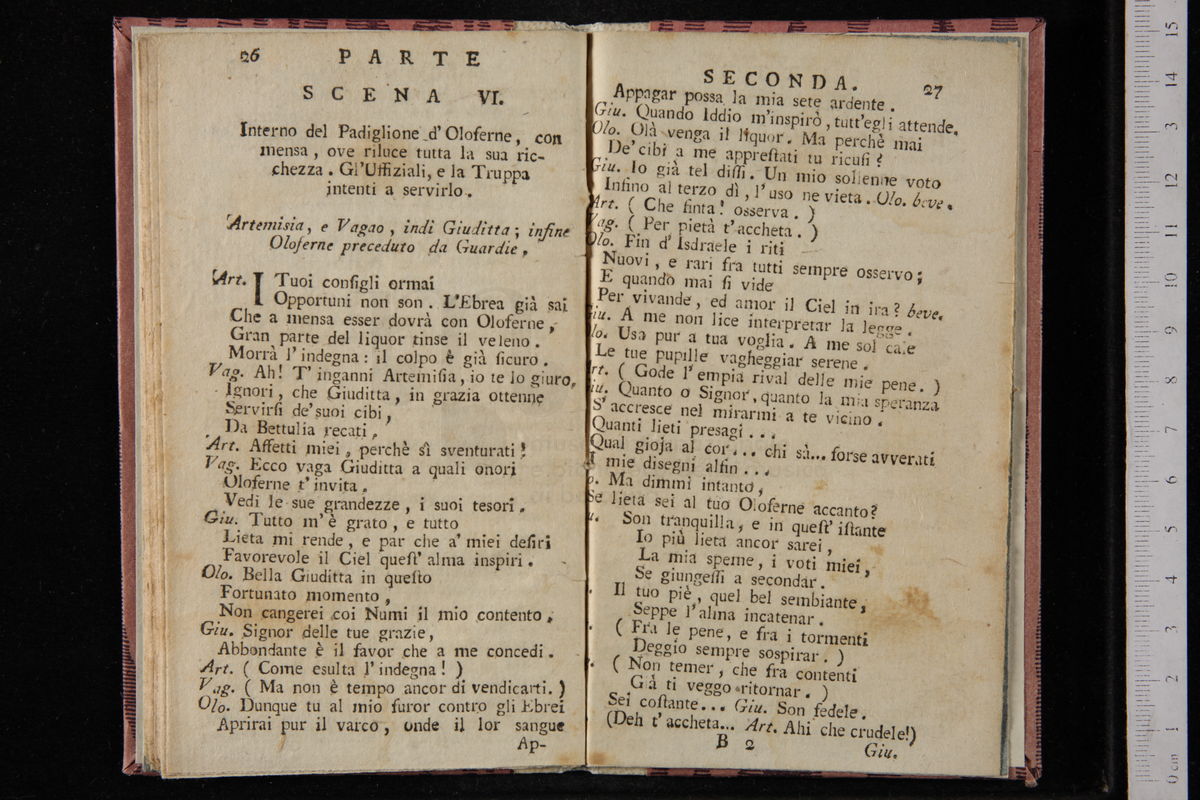 26 PARTE
SCENA VI.
Interno del Padiglione d'Oloferne, con
mensa, ove riluce tutta la sua ric-
chezza. Gl'Uffiziali, e la Truppa
intenti a servirlo.
Artemisia, e Vagao, indi Giuditta; infine
Oloferne preceduto da Guardie,
Art. I Tuoi configli ormai
Opportuni non son. L'Ebrea già sai
Che a mensa esser dovrà con Oloferne,
Gran parte del liquor tinse il veleno.
Morrà l'indegna: il colpo è già ſicuro.
Vag. Ah! T'inganni Artemiſia, io te lo giuro,
Ignori, che Giuditta, in grazia ottenne
Servirſi de'suoi cibi,
Da Bettulia recati,
Art. Affetti miei, perchè sì sventurati!
Vag. Ecco vaga Giuditta a quali onori
Oloferne t'invita.
Vedi le sue grandezze, i suoi tesori.
Giu. Tutto m'è grato, e tutto
Lieta mi rende, e par che a' miei deſiri
Favorevole il Ciel queſt' alma inspiri.
Olo. Bella Giuditta in queſto
Fortunato momento,
Non cangerei coi Numi il mio contento,
Giu. Signor delle tue grazie,
Abbondante è il favor che a me concedi.
Art. (Come esulta l'indegna!)
Vag. (Ma non è tempo ancor di vendicarti.)
Olo. Dunque tu al mio furor contro gli Ebrei
Aprirai pur il varco, onde il lor sangue
Ap-
SECONDA. 27
Appagar possa la mia sete ardente.
Giu. Quando Iddio m'inspirò, tutt'egli attende.
Olo. Olà venga il liquor. Ma perchè mai
De'cibi a me appreſtati tu ricuſi?
Giu. Io già tel diſſi. Un mio sollenne voto
Infino al terzo dì, l'uso ne vieta. Olo. beve.
Art. (Che finta! osserva.)
Vag. (Per pietà t'accheta.)
Olo. Fin d'Isdraele i riti
Nuovi, e rari fra tutti sempre osservo;
E quando mai ſi vide
Per vivande, ed amor il Ciel in ira? beve.
iu. A me non lice interpretar la legge.
lo. Usa pur a tua voglia. A me sol cale
Le tue pupille vagheggiar serene.
rt. (Gode l'empia rival delle mie pene.)
iu. Quanto o Signor, quanto la mia speranza
S'accresce nel mirarmi a te vicino.
Quanti lieti presagi...
Qual gioja al cor... chi sà... forse avverati
I mie disegni alfin...
o. Ma dimmi intanto,
Se lieta sei al tuo Oloferne accanto?
u. Son tranquilla, e in queſt' iſtante
Io più lieta ancor sarei,
La mia speme, i voti miei,
Se giungeſſi a secondar.
Il tuo piè, quel bel sembiante,
Seppe l'alma incatenar.
(Fra le pene, e fra i tormenti
Deggio sempre sospirar.)
(Non temer, che fra contenti
Già ti veggo ritornar.)
Sei coſtante... Giu. Son fedele.
(Deh t'accheta... Art. Ahi che crudele!)
B 2
Giu.